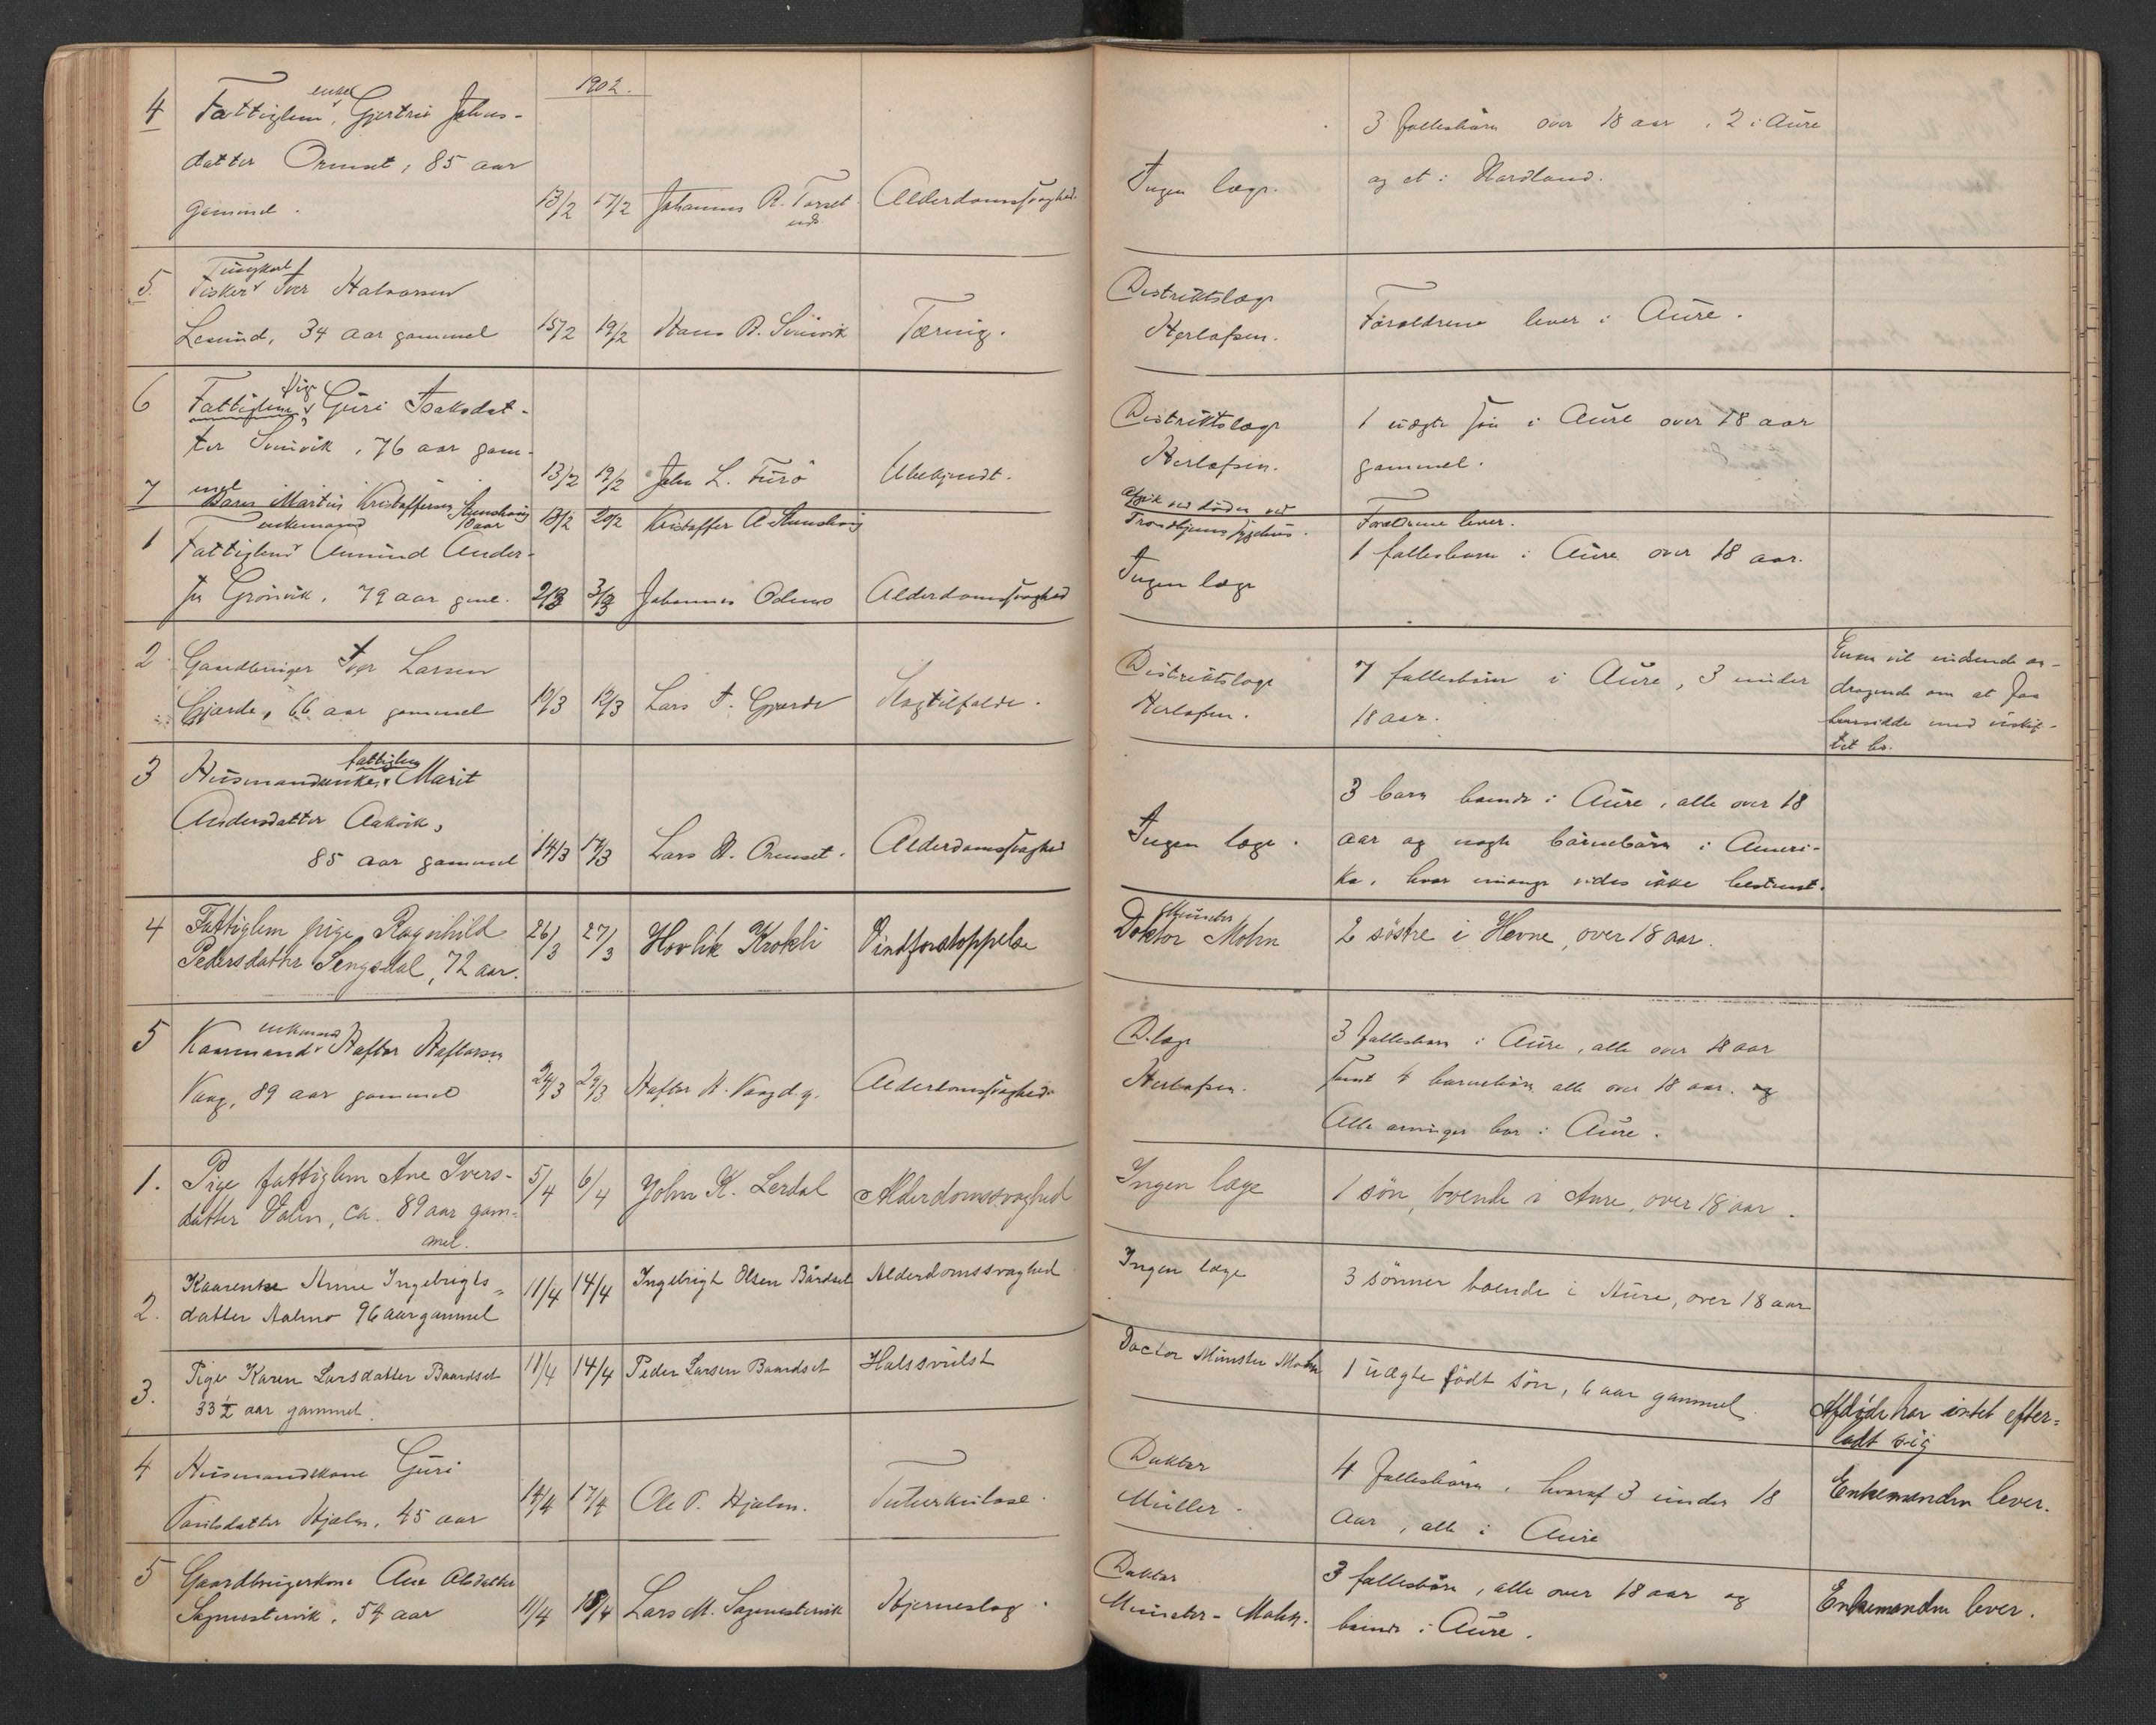 1902.
4 Fattiglem, enke, Gjertrú Johns-
datter Ormset, 85 aar
gammel.
13/2 17/2 Johannes R. Torset Alderdomssvaghed.
Ingen læge.
3 fællesbörn over 18 aar, 2 i Aure
og et i Nordland.
5. Fisker Ungkarl Iver Halvorsen
Lesund, 34 aar gammel 15/2 19/2 Hans R. Tæring.
Distriktslæge
Herlofsen.
Forældrene lever i Aure.
6 Fattiglem pige Guri Isaksdat-
ter 76 aar gam-
mel 13/2 19/2 John L. Ubekjendt.
Distriktslæge
Herlofsen.
1 uægte søn i Aure over 18 aar
gammel.
7 Barn Martin Kristoffersen Stenshaug
10 aar 13/2 20/2 Kristoffer A. Stenshaug
Trondhjems sygehus.
Forældrene lever.
1 Fattiglem enkemand Amund Ander-
sen Grönvik, 79 aar gml. 2/3 3/3 Johannes Alderdomssvaghed
Ingen læge
1 fællesbarn i Aure over 18 aar.
2 Gaardbruger Iver Larsen
Gjærde, 66 aar gammel 10/3 12/3 Lars I. Gjærde Slagtilfælde.
Distriktslæge
Herlofsen.
7 fællesbörn i Aure, 3 under
18 aar.
Enken vil indsende an-
dragende om at faa
hensidde med uskif-
tet bo.
3 Husmandsenke, fattiglem Marit
Andersdatter Aakvik,
85 aar gammel 14/3 17/3 Lars H. Ormset. Alderdomssvaghed
Ingen læge.
3 barn boende i Aure, alle over 18
aar og nogle barnebörn i Ameri-
ka, hvor mange vides ikke bestemt.
4 Fattiglem pige Ragnhild
Pedersdatter Lengsdal, 72 aar.
26/3 27/3 Hovlik Krokli Vindforstoppelse
Doktor Münster Mohn
2 söstre i Hevne, over 18 aar.
5 Kaarmand enkemand Haftor Haftorsen
Vaag, 89 aar gammel 24/3 29/3 Haftor H. Vaag d.y. Alderdomssvaghed.
D.læge
Herlofsen.
3 fællesbarn i Aure, alle over 18 aar
samt 4 barnebörn alle over 18 aar. og
Alle arvinger bor i Aure.
1. Pige fattiglem Ane Ivers-
datter Valen, ca. 89 aar gam-
mel.
5/4 6/4 John K. Lerdal Alderdomssvaghed
Ingen læge
1 sön, boende i Aure, over 18 aar.
2. Kaarenke Anne Ingebrigts-
datter Aalmo 96 aar gammel
11/4 14/4 Ingebrigt Olsen Bårdset Alderdomssvaghed
Ingen læge
3 sönner boende i Aure, over 18 aar
3. Pige Karen Larsdatter Baardset
33½ aar gammel.
11/4 14/4 Peder Larsen Baardset Halssvulst
Doctor Münster Mohn
1 uægte födt sön, 6 aar gammel.
Afdöde har intet efter-
ladt sig
4 Husmandskone Guri
Poulsdatter Hjelm, 45 aar 14/4 17/4 Ole P. Hjelm. Tuberkulose.
Doktor
Müller.
4 fællesbörn, hvoraf 3 under 18
aar, alle i Aure
Enkemanden lever.
5 Gaardbrugerkone Ane Olsdatter
Sagmestervik, 54 aar 11/4 18/4 Lars M. Sagmestervik Hjerneslag.
Doktor
Münster-Mohn.
3 fællesbörn, alle over 18 aar og
boende i Aure.
Enkemanden lever.